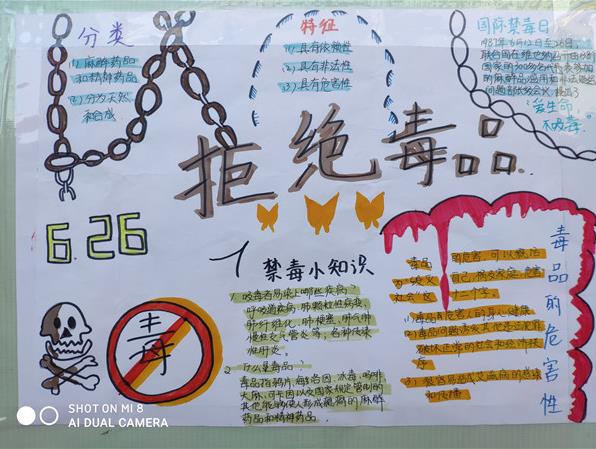 分类
(1) 麻醉药品
和精神药品
(2) 分为天然
和合成
特征
(1) 具有依赖性
(2) 具有非法性
(3) 具有危害性
国际禁毒日
1987年6月12日至26日,
联合国在维也纳召开由138个
国家的3000名代表参加
的麻醉品滥用和非法贩运
问题部长级会议,提出了
“爱生命,
不吸毒。”
拒绝毒品
6.26
禁毒小知识
1. 吸毒者易染上哪些疾病?
呼吸道疾病
肺纤维化、肺梗塞、肺气肿
慢性支气管炎等,各种传染
性肝炎。
2. 什么是毒品?
毒品指鸦片、海洛因、冰毒、吗啡
大麻、可卡因以及国家规定管制的
其他能够使人形成瘾癖的麻醉
药品和精神药品。
毒
毒品的危害性
毒品的危害,可以概括
为“毁灭自己、祸及家庭、危害
社会”十二个字。
(1) 毒品严重危害人的身心健康
(2) 毒品问题诱发其他违法犯罪
破坏正常的社会和经济秩
序
(3)
和传播
SHOT ON MI 8
AI DUAL CAMERA